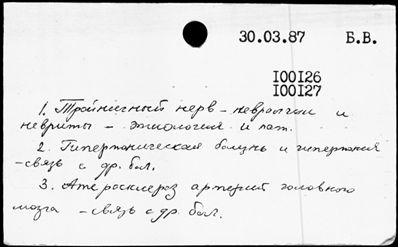 30.03.87 Б.В.
I00I26
I00I27
1. Тройничный нерв - невралгии и
невриты - этиология и пат.
2. Гипертоническая болезнь и гипертония
- связь с др. бол.
3. Атеросклероз артерий головного
мозга - связь с др. бол.